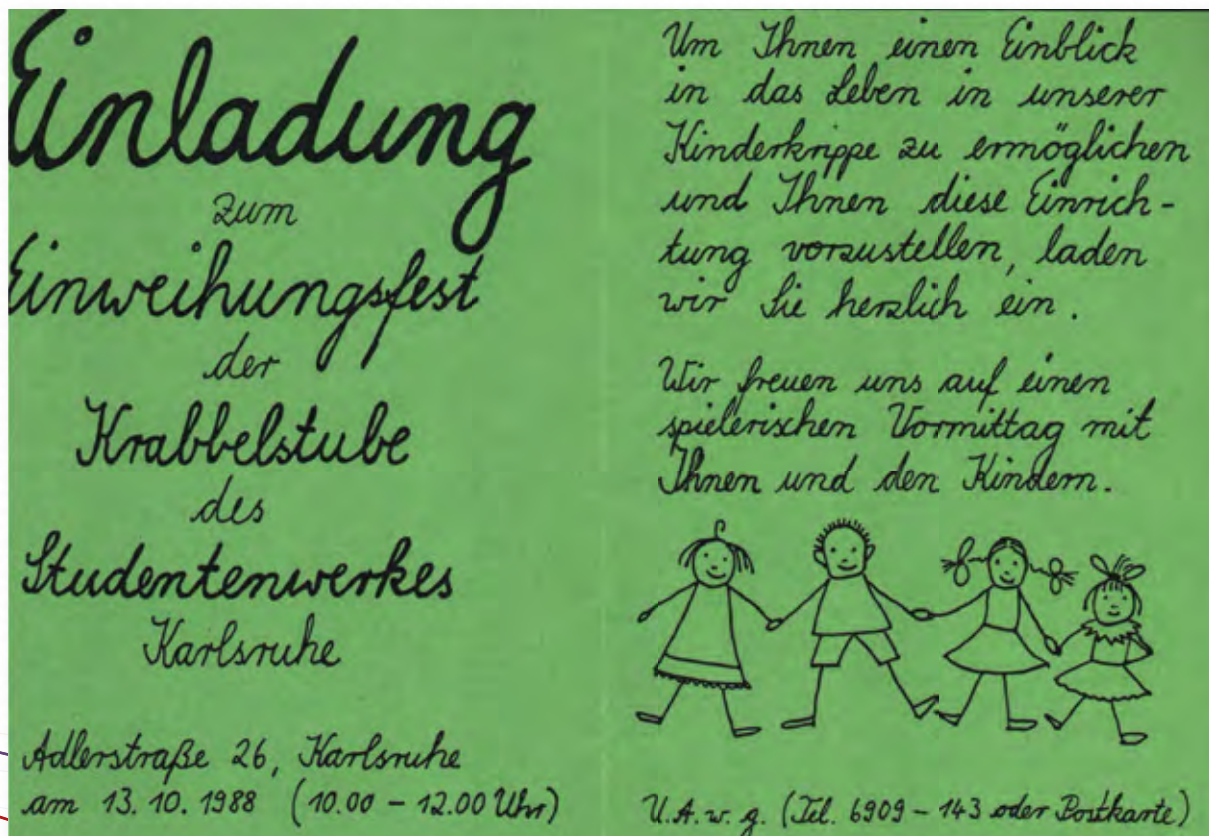 Einladung
zum
Einweihungsfest
der
Krabbelstube
des
Studentenwerkes
Karlsruhe
Adlerstraße 26, Karlsruhe
am 13.10.1988 (10.00 - 12.00 Uhr)
Um Ihnen einen Einblick
in das Leben in unserer
Kinderkrippe zu ermöglichen
und Ihnen diese Einrich-
tung vorzustellen, laden
wir Sie herzlich ein.
Wir freuen uns auf einen
spielerischen Vormittag mit
Ihnen und den Kindern.
U.A.w.g. (Tel. 6909 - 143 oder Postkarte)